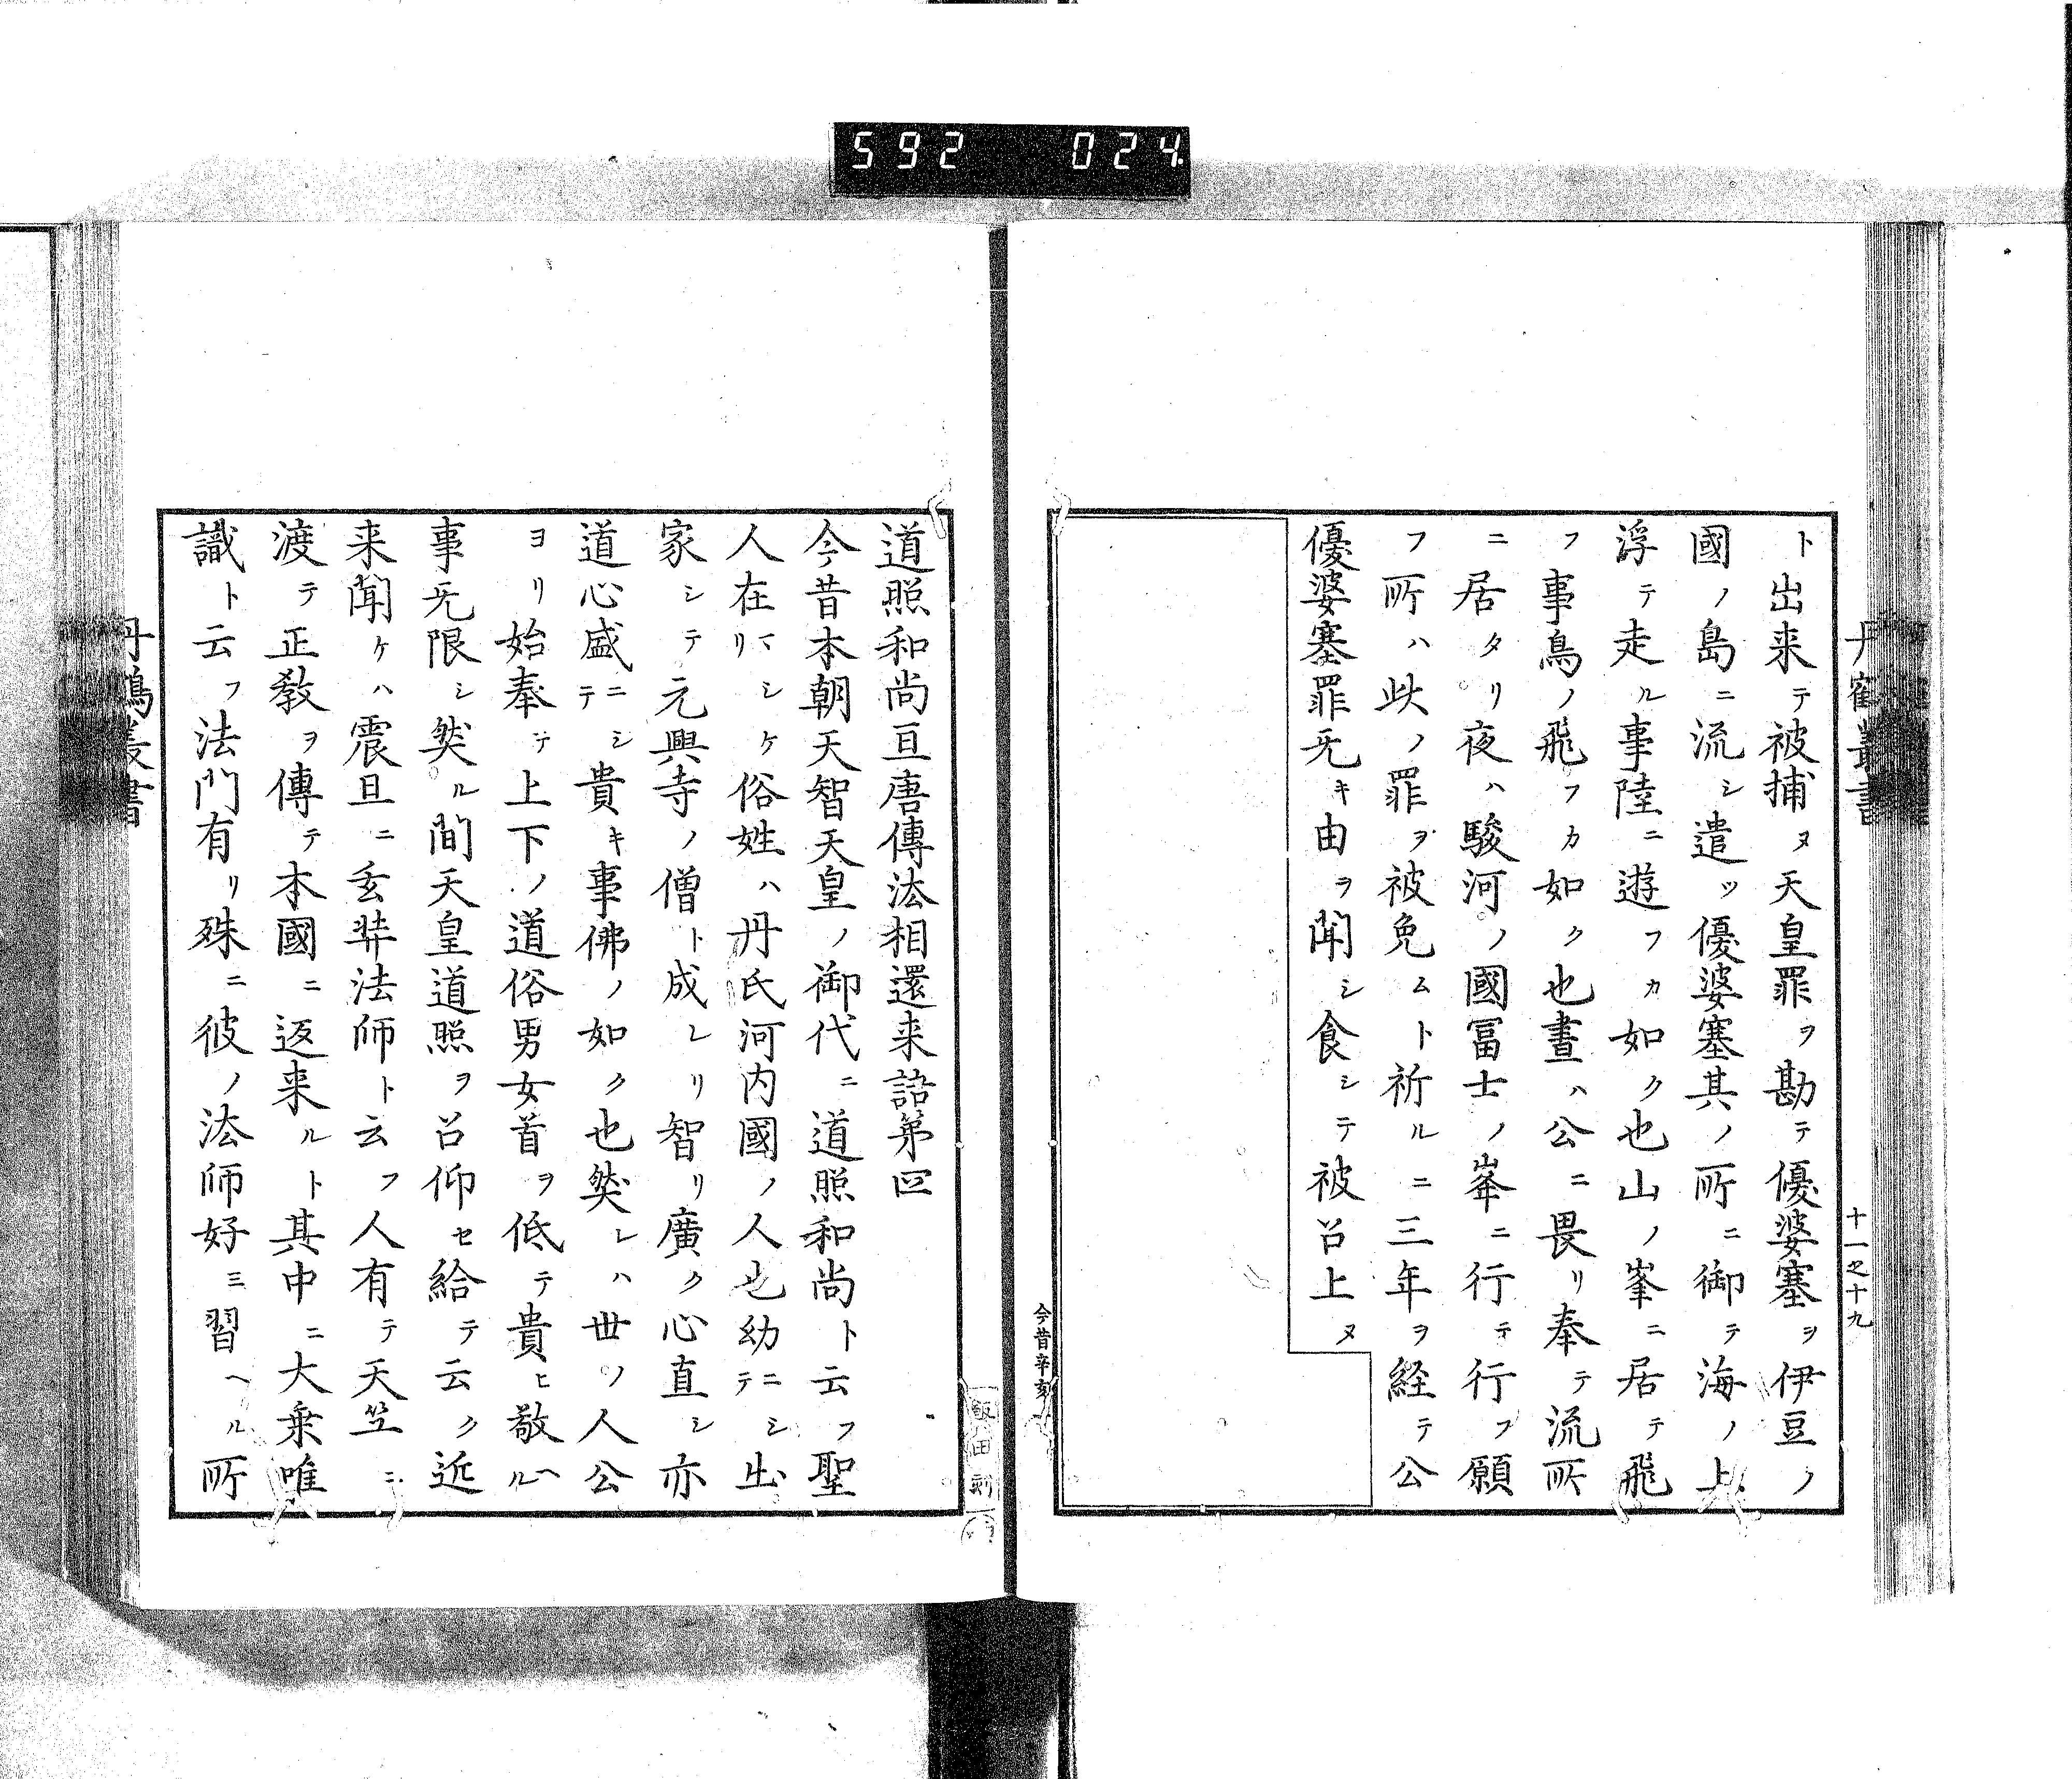 592 024
丹鶴叢書
十一之十九
ト出来テ被捕ヌ天皇罪ヲ勘テ優婆塞ヲ伊豆ノ
國ノ島ニ流シ遣ツ優婆塞其ノ所ニ御テ海ノ上
浮テ走ル事陸ニ遊フカ如ク也山ノ峯ニ居テ飛
フ事鳥ノ飛フカ如ク也晝ハ公ニ畏リ奉テ流所
ニ居タリ夜ハ駿河ノ國冨士ノ峯ニ行テ行フ願
フ所ハ此ノ罪ヲ被免ムト祈ルニ三年ヲ経テ公
優婆塞罪无キ由ヲ聞シ食シテ被召上ヌ
今昔辛亥
道照和尚亘唐傳法相還来語第四
今昔本朝天智天皇ノ御代ニ道照和尚ト云フ聖
人在マシケリ俗姓ハ丹氏河内國ノ人也幼ニシテ出
家シテ元興寺ノ僧ト成レリ智リ廣ク心直シ亦
道心盛ニシテ貴キ事佛ノ如ク也然レハ世ノ人公
ヨリ始奉テ上下ノ道俗男女首ヲ低テ貴ヒ敬ヘル
事无限シ然ル間天皇道照ヲ召仰セ給テ云ク近
来聞ケハ震旦ニ玄弉法師ト云フ人有テ天竺ニ
渡テ正教ヲ傳テ本國ニ返来ルト其中ニ大乗唯
識ト云フ法門有リ殊ニ彼ノ法師好ミ習ヘル所
丹鶴叢書